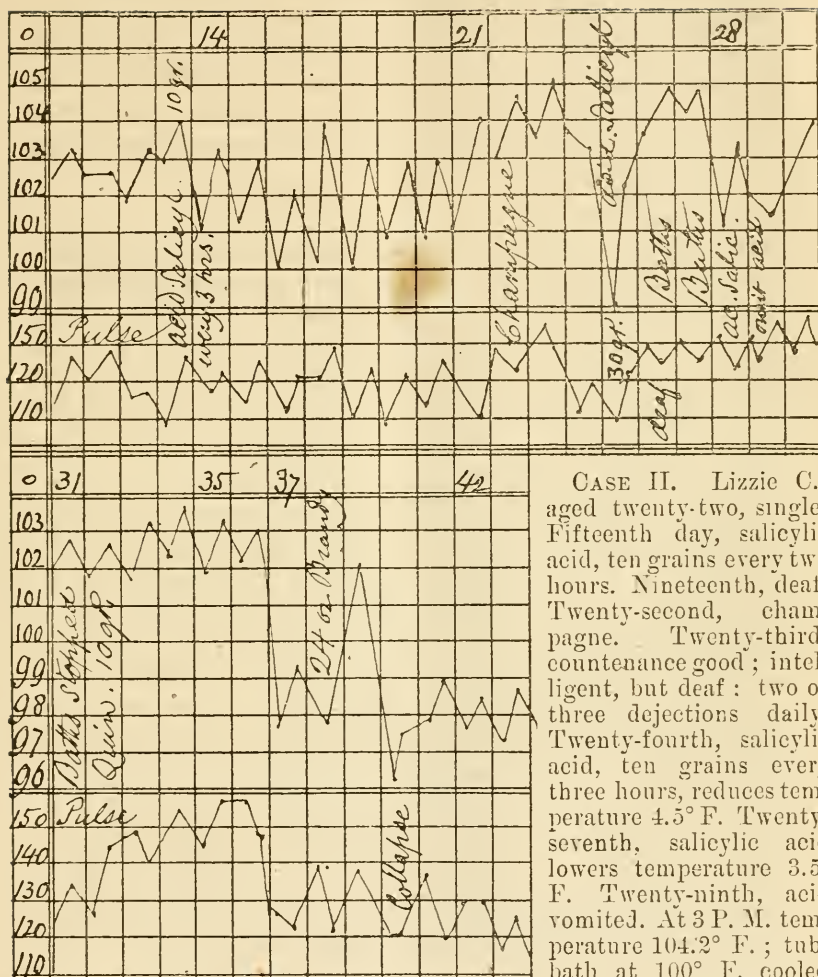 0 14 21 28
105
104
103
102
101
100
90
Pulse
150
120
110
acid Salicyl. 10 gr.
every 3 hrs.
Champegne
30 gr. acid. Salicyl
deaf
Baths
Baths
ac. Salic.
omit acid
0 31 35 37 42
103
102
101
100
99
98
97
96
Baths Stopped
Quin. 10 gr.
24 oz Brandy
Pulse
150
140
130
120
110
Collapse
CASE II. Lizzie C.
aged twenty-two, single
Fifteenth day, salicyli
acid, ten grains every tw
hours. Nineteenth, deaf
Twenty-second, cham
pagne. Twenty-third
countenance good; intel
ligent, but deaf: two o
three dejections daily
Twenty-fourth, salicyli
acid, ten grains ever
three hours, reduces tem
perature 4.5° F. Twenty
seventh, salicylic acid
lowers temperature 3.5
F. Twenty-ninth, aci
vomited. At 3 P. M. tem
perature 104.2° F.; tub
bath at 100° F. cooled